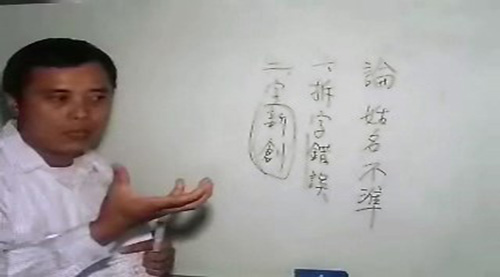 論姓名不準
一、拆字錯誤
二、字新創